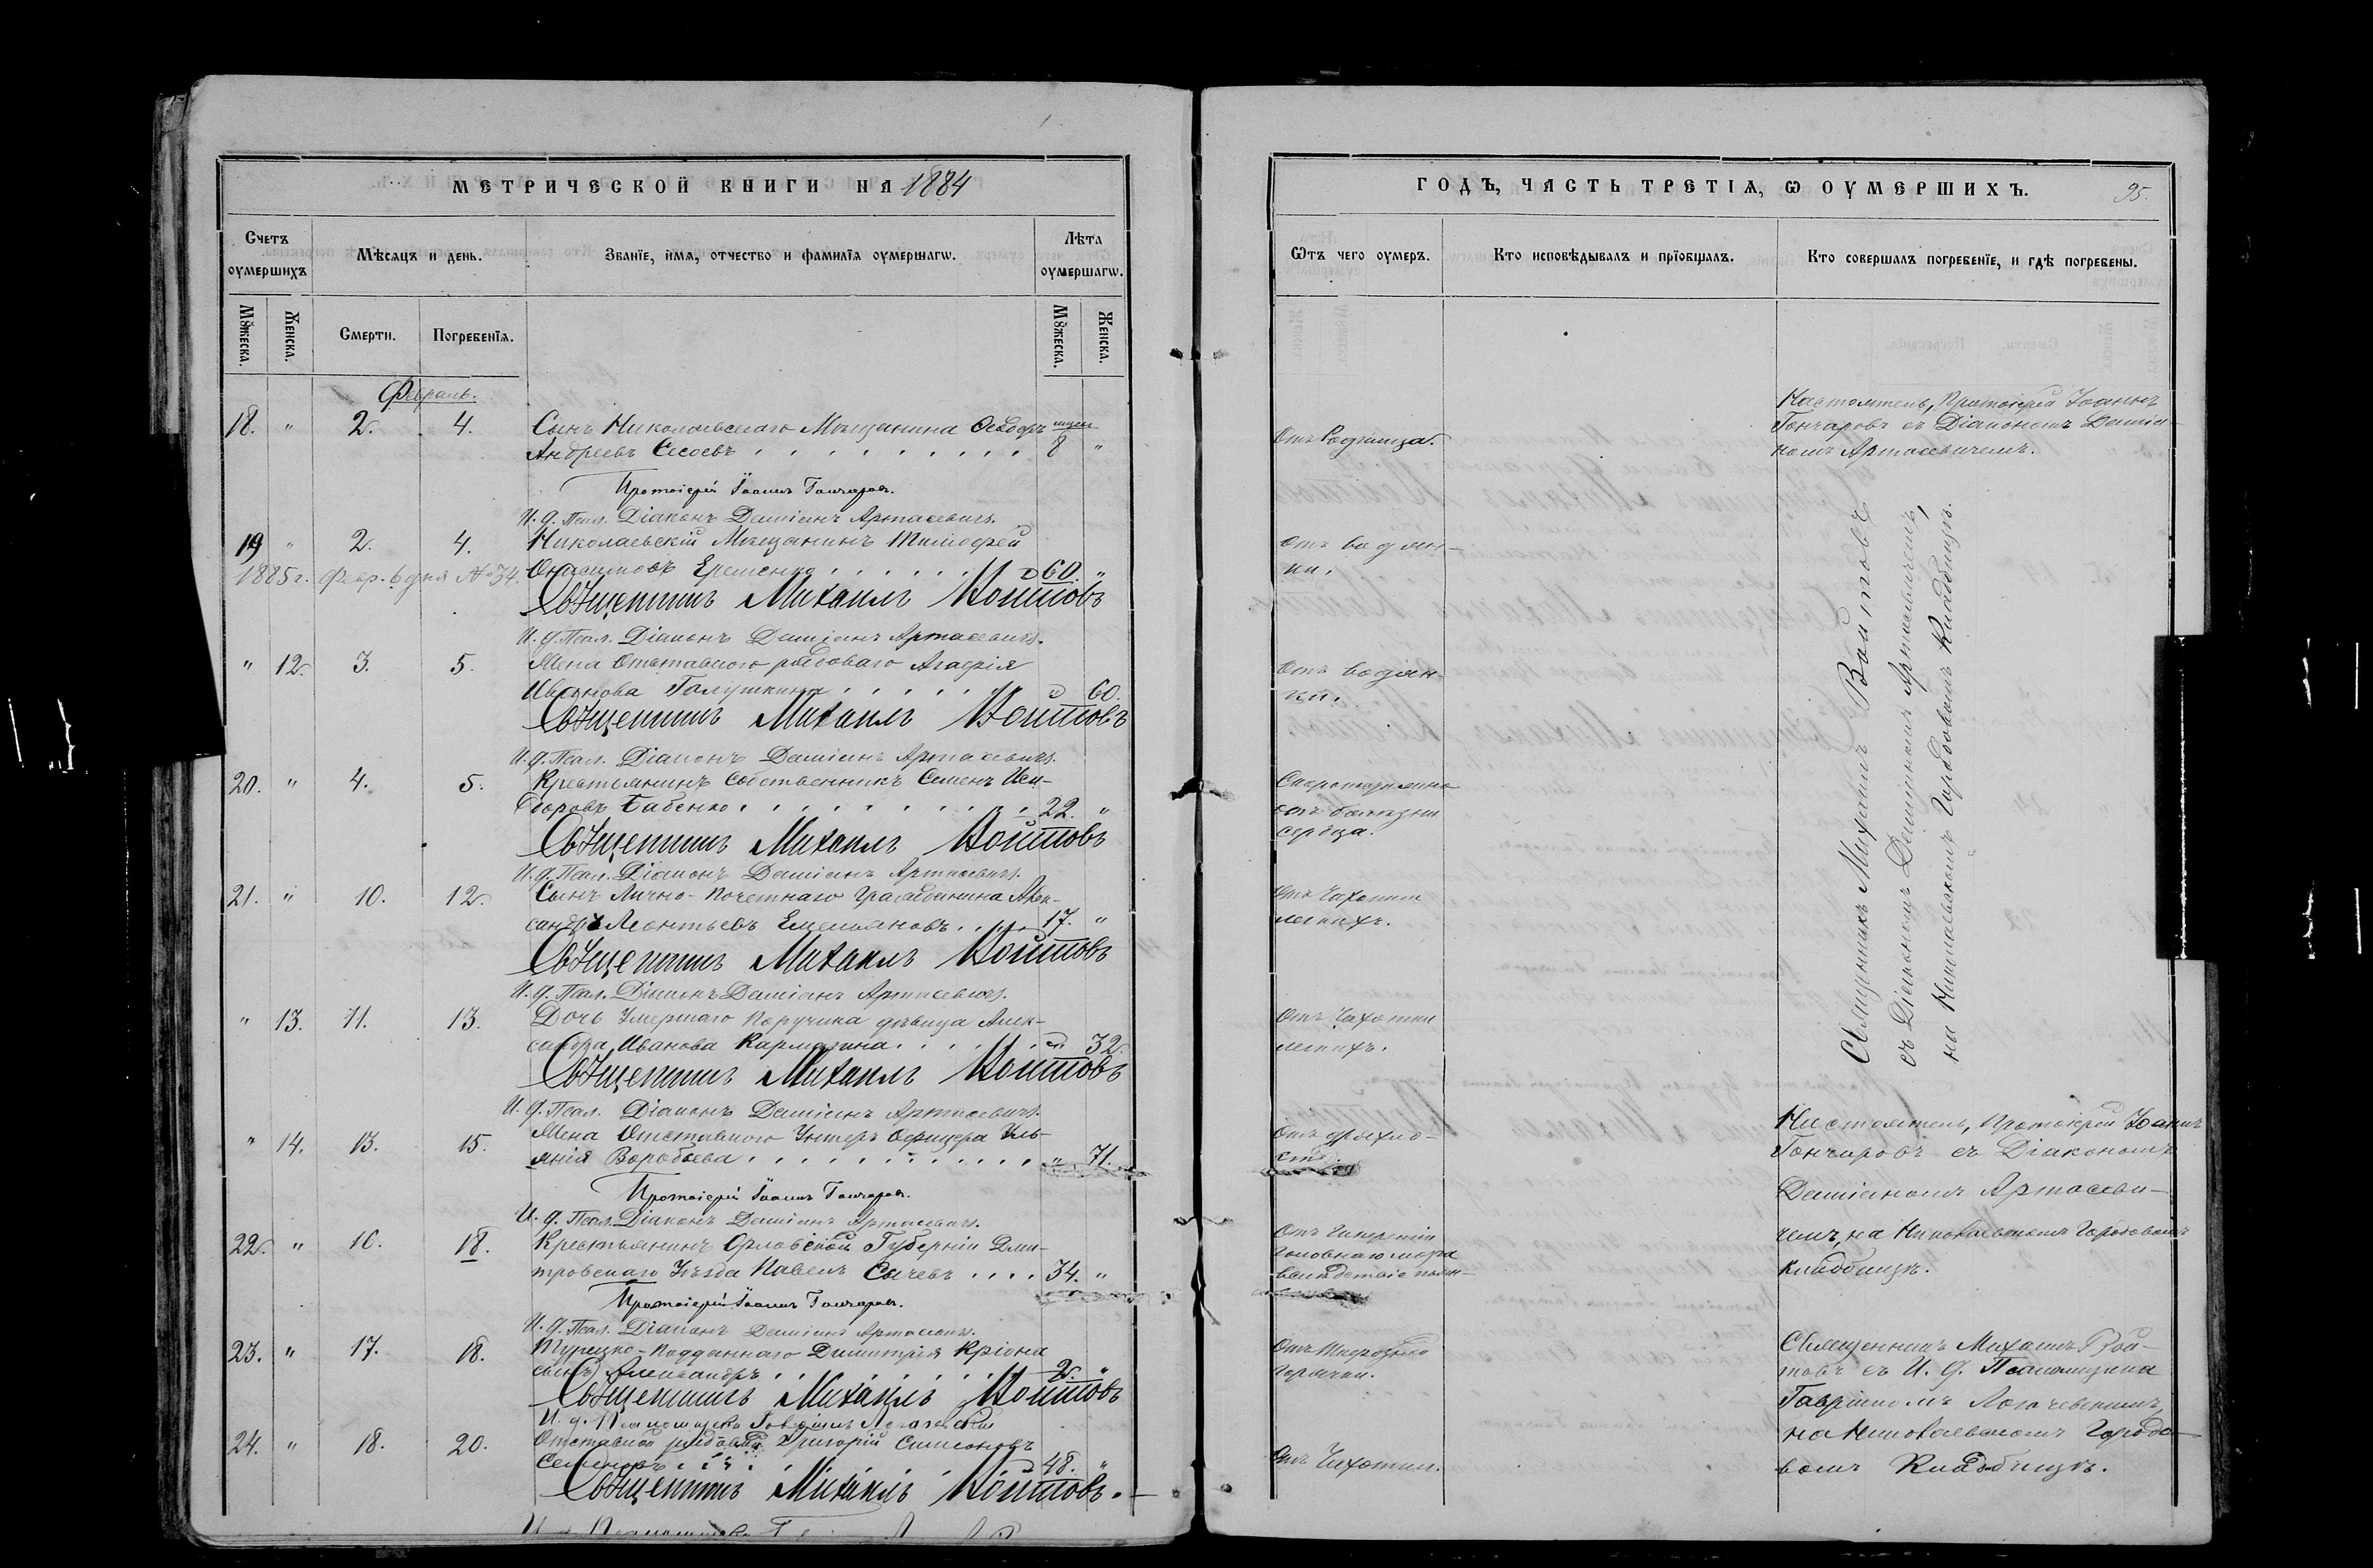 МЕТРИЧЕСКОЙ КНИГИ НА 1884
Счетъ оумершихъ
Мѣсяцъ и день.
Званїе, имя, отчество и фамилїя оумершагѡ.
Лѣта оумершагѡ.
Мꙋжеска.
Женска.
Смерти.
Погребенїя.
Мꙋжеска.
Женска.
Февраль.
18. " 2. 4. Сынъ Николаевскаго Мѣщанина Ѳеодоръ
Андреевъ Сысоевъ 8 "
Протоіерей Іоаннъ Гончаровъ.
И. д. Псал. Діаконъ Даміанъ Артасевичъ.
19 " 2. 4. Николаевскій Мѣщанинъ Тимофей
1885 г. Февр. 6 дня № 34. Онисимовъ Еременко 60. "
Священникъ Михаилъ Войтовъ
И. д. Псал. Діаконъ Даміанъ Артасевичъ.
" 12. 3. 5. Жена Отставного рядоваго Агафія
Иванова Галушкина " 60.
Священникъ Михаилъ Войтовъ
И. д. Псал. Діаконъ Даміанъ Артасевичъ.
20. " 4. 5. Крестьянинъ Собственникъ Семенъ Иси-
доровъ Бабенко 22. "
Священникъ Михаилъ Войтовъ
И. д. Псал. Діаконъ Даміанъ Артасевичъ.
21. " 10. 12. Сынъ Лично-Почетнаго Гражданина Алек-
сандръ Леонтьевъ Емельяновъ 17. "
Священникъ Михаилъ Войтовъ
И. д. Псал. Діаконъ Даміанъ Артасевичъ.
" 13. 11. 13. Дочь Умершаго Поручика дѣвица Алек-
сандра Иванова Кармазина " 32.
Священникъ Михаилъ Войтовъ
И. д. Псал. Діаконъ Даміанъ Артасевичъ.
" 14. 13. 15. Жена Отставного Унтеръ Офицера Уль-
янія Воробьева " 71.
Протоіерей Іоаннъ Гончаровъ.
И. д. Псал. Діаконъ Даміанъ Артасевичъ.
22. " 16. 18. Крестьянинъ Орловской Губерніи Дми-
тровскаго Уѣзда Павелъ Сычевъ 34. "
Протоіерей Іоаннъ Гончаровъ.
И. д. Псал. Діаконъ Даміанъ Артасевичъ.
23. " 17. 18. Турецко-подданнаго Димитрія Кріона
сынъ Александръ 2. "
Священникъ Михаилъ Войтовъ
И. д. Псаломщика Гавріилъ Логачевскій
24. " 18. 20. Отставной рядовой Григорій Симеоновъ
48. "
Священникъ Михаилъ Войтовъ.
ГОДЪ, ЧАСТЬ ТРЕТІѦ, Ѡ ОУМЕРШИХЪ.
95.
Ѿтъ чего оумеръ.
Кто исповѣдывалъ и прїобщалъ.
Кто совершалъ погребенїе, и гдѣ погребены.
Отъ Родимца.
Отъ водян-
ки.
Отъ водян-
ки.
Скоропостижно
отъ болѣзни
сердца.
Отъ Чахотки
легкихъ.
Отъ Чахотки
легкихъ.
Отъ дряхло-
сти.
Отъ Гипереміи
Головнаго мозга
вслѣдствіе
Отъ
Горячки.
Отъ Чахотки.
Настоятель, Протоіерей Іоаннъ
Гончаровъ съ Діакономъ Даміа-
номъ Артасевичемъ.
Священникъ Михаилъ Войтовъ
съ Діакономъ Даміаномъ Артасевичемъ,
на Николаевскомъ Городовомъ Кладбищѣ.
Настоятель, Протоіерей Іоаннъ
Гончаровъ съ Діакономъ
Даміаномъ Артасеви-
чемъ, на Николаевскомъ Городовомъ
Кладбищѣ.
Священникъ Михаилъ Вой-
товъ съ И. д. Псаломщика
Гавріиломъ Логачевскимъ,
на Николаевскомъ Городо-
вомъ Кладбищѣ.